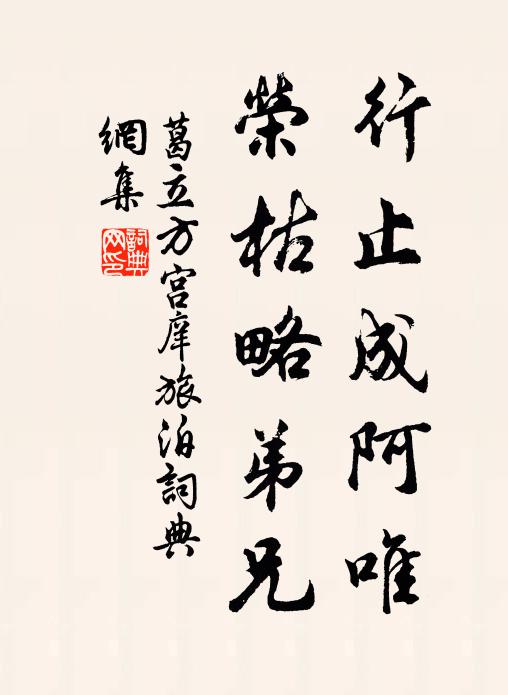 行止成阿唯
榮枯略弟兄
葛立方宫庠旅泊詞典
網集
詞典
网印